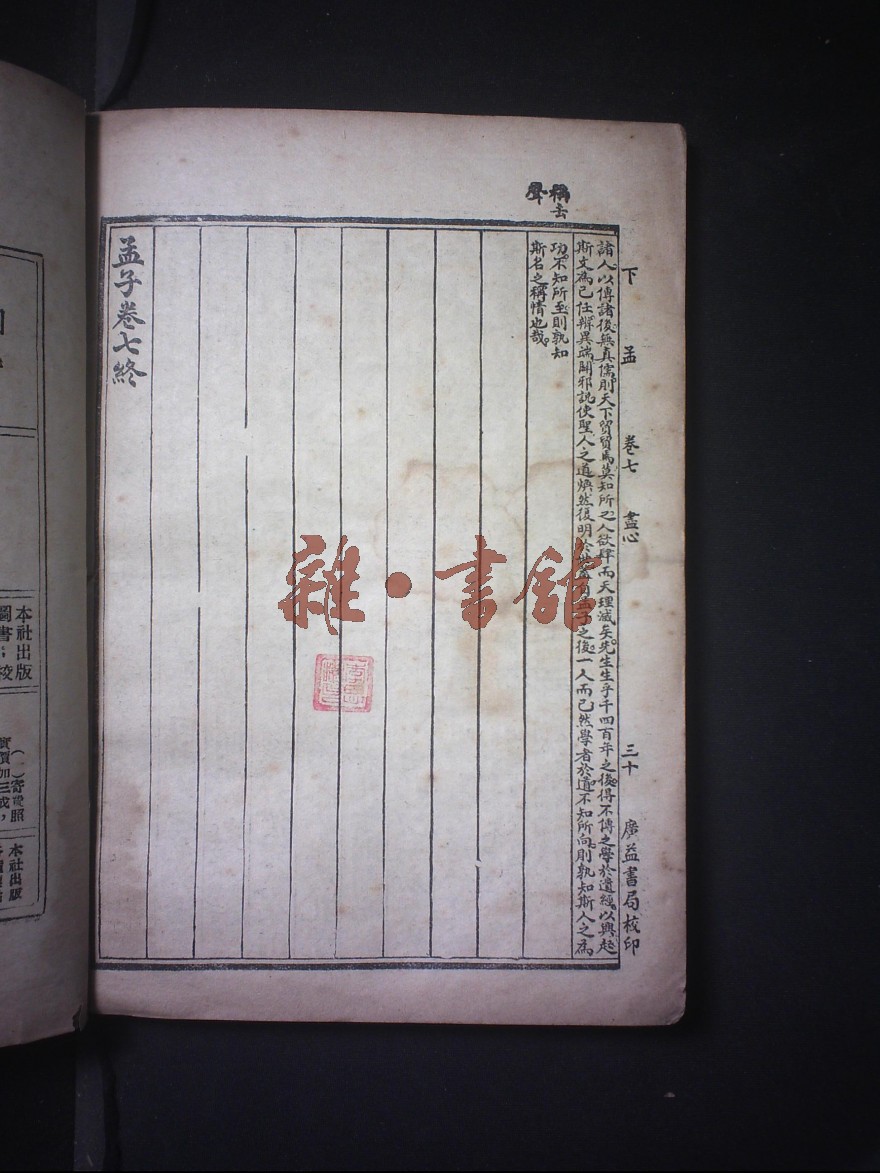 稱去
聲
下孟 卷七 盡心 三十 廣益書局校印
諸人以傳諸後無真儒則天下貿貿焉莫知所之人欲肆而天理滅矣先生生乎千四百年之後得不傳之學於遺經以興起
斯文為己任辨異端闢邪說使聖人之道煥然復明於世蓋自孟子之後一人而已然學者於道不知所向則孰知斯人之為
功不知所至則孰知
斯名之稱情也哉
孟子卷七終
雜·書館
本社出版
圖書
校
實價加三成
(一)寄費照
本社出版